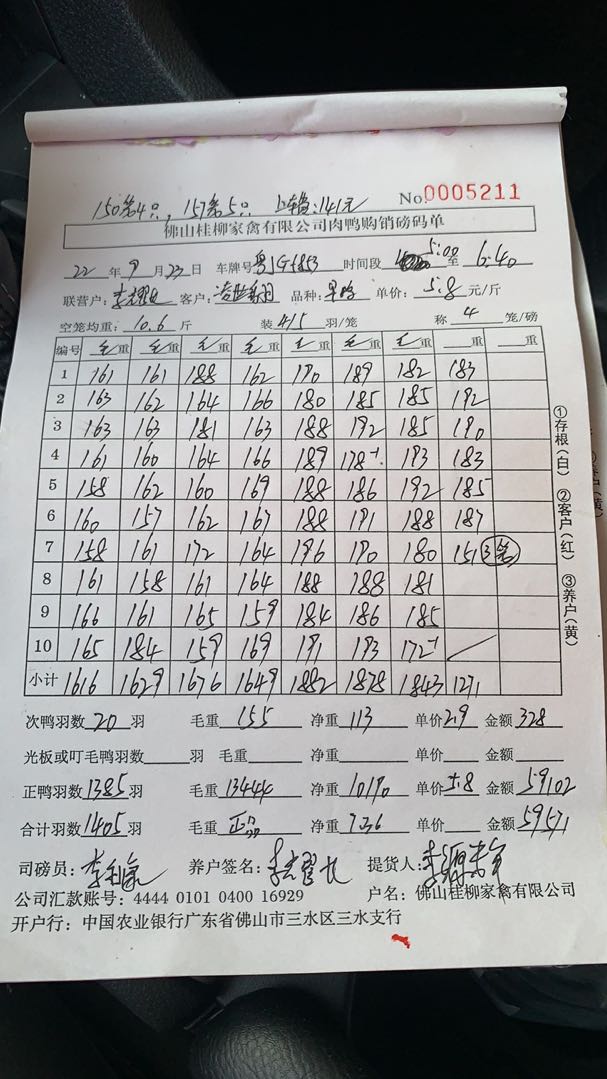 150第4只，157第5只 上车费：141元 No.0005211
佛山桂柳家禽有限公司肉鸭购销磅码单
22年9月23日 车牌号 时间段 5:00 至 6:40
联营户： 客户： 品种： 单价：5.8元/斤
空笼均重：10.6斤 装4/5羽/笼 称4笼/磅
编号 毛重 毛重 毛重 毛重 毛重 毛重 毛重 重 重
1 161 161 188 162 190 189 182 183
2 163 162 164 166 180 185 185 192
3 163 163 181 163 188 192 185 190
4 161 160 164 166 189 178-1 193 183
5 158 162 160 169 188 186 192 185
6 160 157 162 167 188 191 188 187
7 158 161 172 164 196 190 180 151 3笼
8 161 158 161 164 188 188 181
9 166 161 165 159 184 186 185
10 165 184 159 169 191 193 172-1
小计 1616 1629 1676 1649 1882 1878 1843 1271
①存根(白) ②客户(红) ③养户(黄)
次鸭羽数20羽 毛重155 净重113 单价2.9 金额328
光板或叮毛鸭羽数 羽 毛重 净重 单价 金额
正鸭羽数1385羽 毛重13444 净重10190 单价5.8 金额59102
合计羽数1405羽 毛重正品 净重7.36 单价 金额59571
司磅员： 养户签名： 提货人：
公司汇款账号：4444 0101 0400 16929 户名：佛山桂柳家禽有限公司
开户行：中国农业银行广东省佛山市三水区三水支行